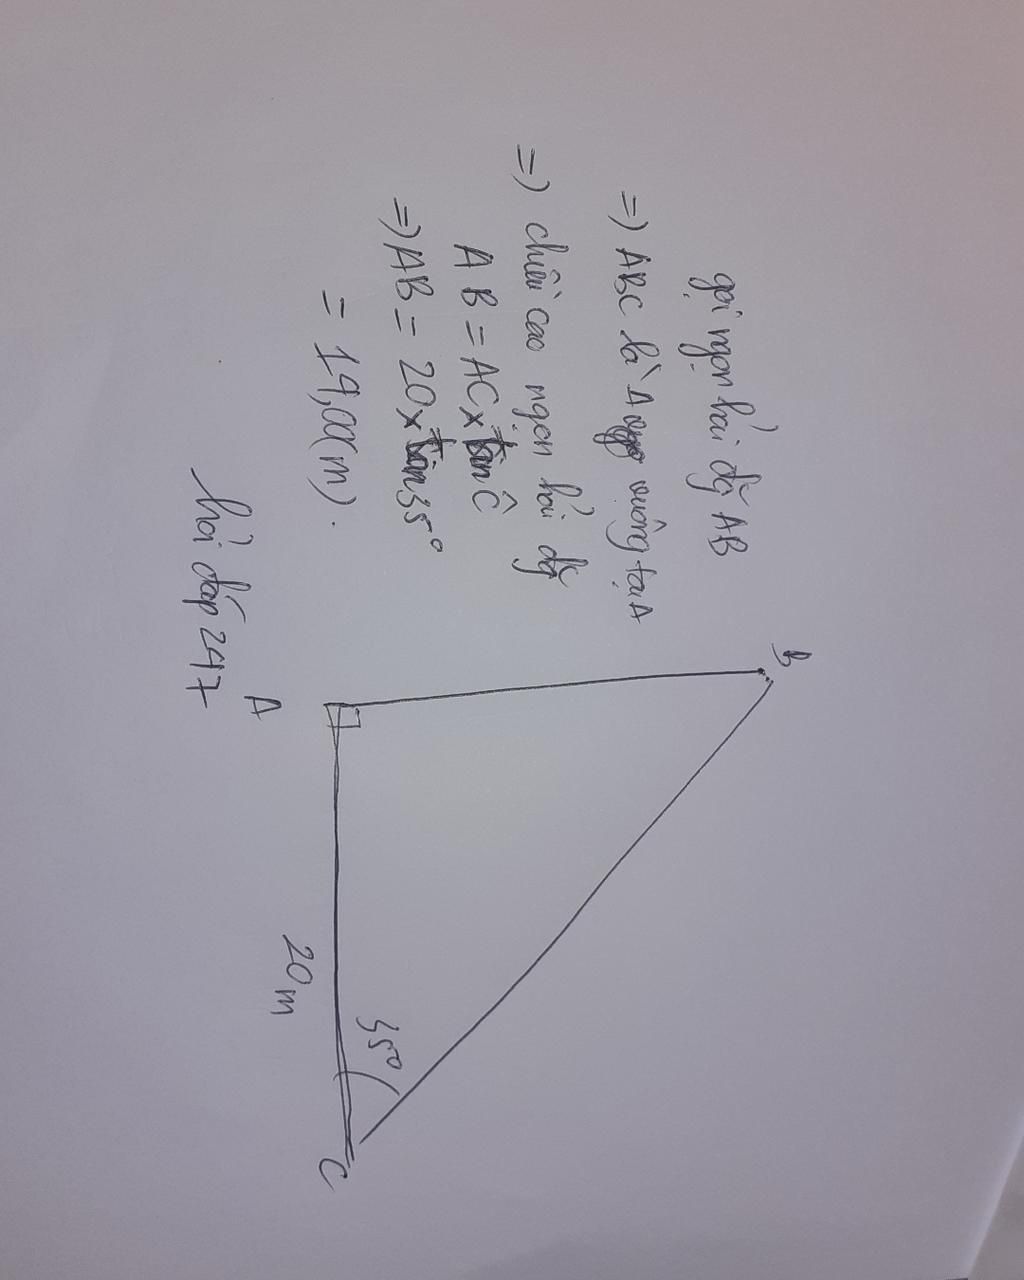 gọi ngọn hải đg AB
=) ABC là Δ vuông tại A
=) chiều cao ngọn hải đg
AB = AC x tan Ĉ
=) AB = 20 x tan 35°
= 14,00(m).
hỏi đáp 247
B
A
20m
35°
C